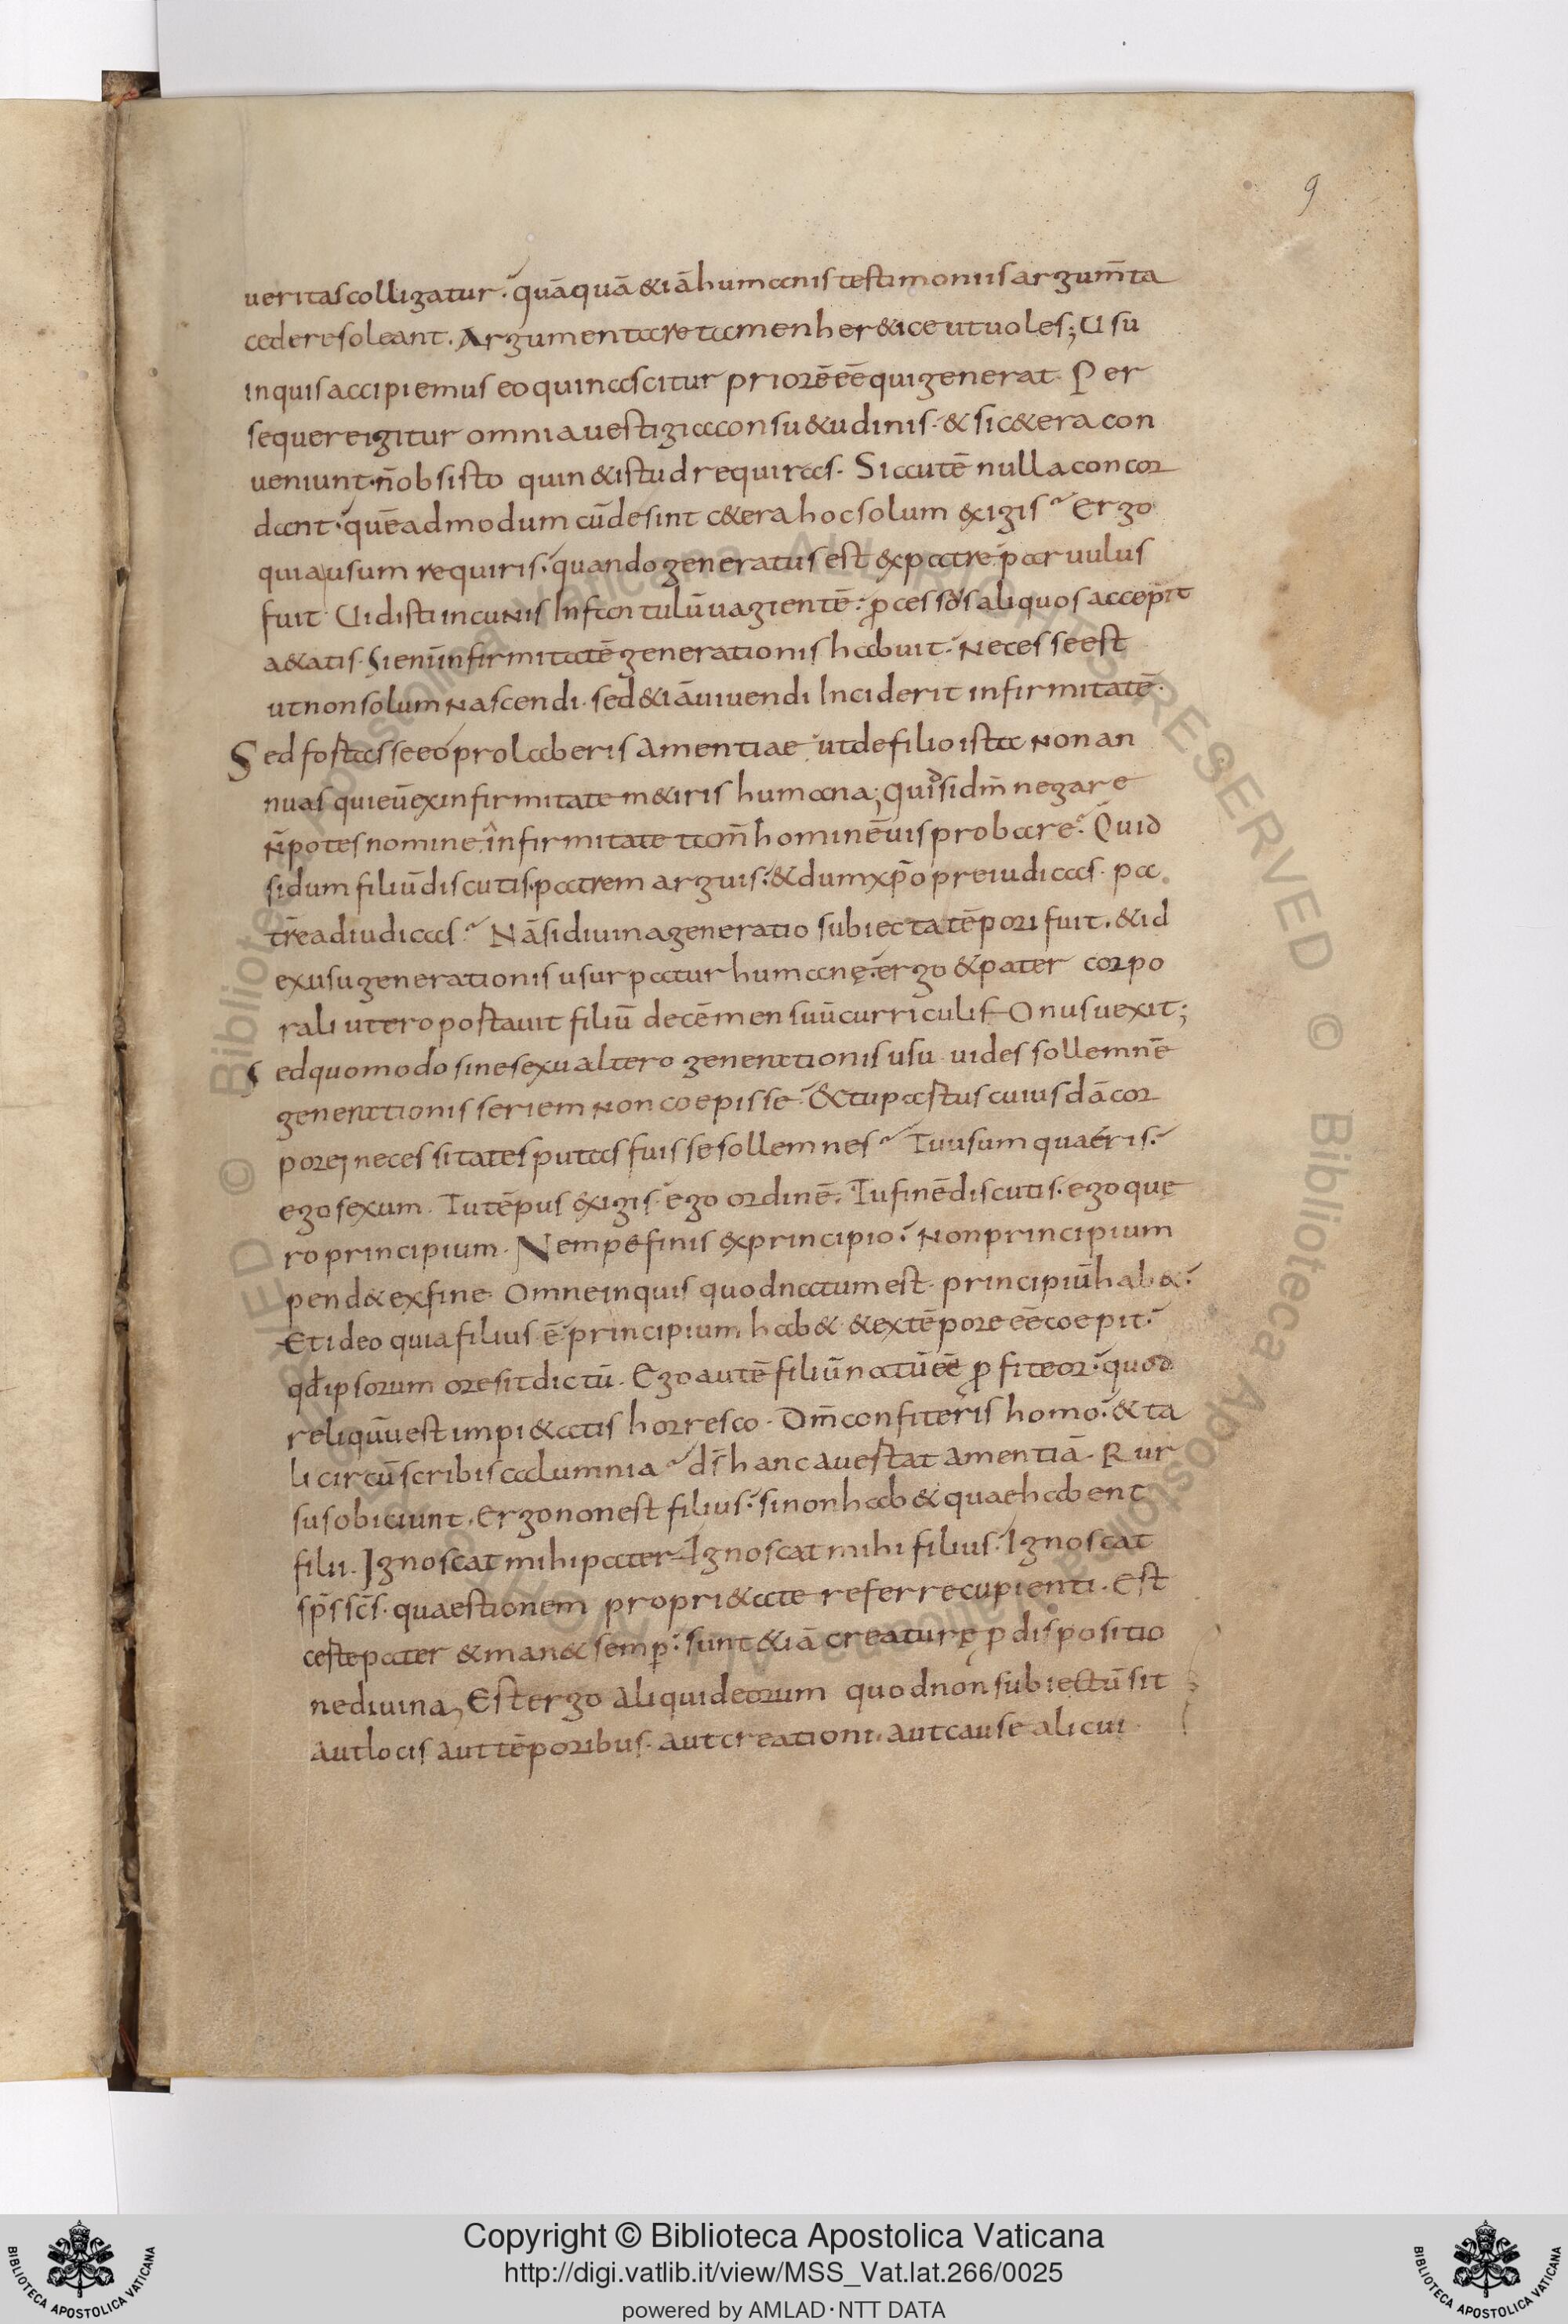 9
ueritas colligatur. quāquā &iā humanis testimoniis argum̄ta
cedere soleant. Argumentare tamen her&ice ut uoles; Usu
inquis accipiemus eo qui nascitur priorē eē qui generat. Per
sequere igitur omnia uestigia consu&udinis. & si c&era con
ueniunt. n̄ obsisto quin & istud requiras. Si autē nulla concor
dant. quēadmodum cū desint c&era hoc solum exigis? Ergo
quia usum requiris. quando generatus est ex patre paruulus
fuit Uidisti in cunis Infantulū uagientē. ꝓcessus aliquos accepit
a&atis. Si enī infirmitatē generationis habuit. Necesse est
ut non solum Nascendi. sed &iā uiuendi Inciderit infirmitatē.
Sed fortasse eo prolaberis Amentiae ut de filio ista Non an
nuas qui eū ex infirmitate m&iris humana; Quid si dm̄ negare
N̄ potes nomine. infirmitate tam̄ hominē uis probare? Quid
si dum filiū discutis. patrem arguis. & dum xp̄o preiudicas. pa
trē adiudicas? Nā si diuina generatio subiecta tēpori fuit. & id
ex usu generationis usurpatur humanę. ergo & pater corpo
rali utero portauit filiū decē mensuū curriculis Onus uexit;
Sed quomodo sine sexu altero generationis usu. uides sollemnē
generationis seriem Non coepisse. & tu partus cuiusdā cor
porej necessitates putas fuisse sollemnes? Tu usum quaeris.
ego sexum. Tu tēpus exigis. ego ordinē. Tu finē discutis. ego quę
ro principium. Nempe finis ex principio. Non principium
pend& ex fine. Omne inquis quod natum est. principiū hab&.
Et ideo quia filius ē principium hab& & ex tēpore eē coepit.
qd̄ ipsorum ore sit dictū. Ego autē filiū natū eē ꝓfiteor. quod
reliquū est impi&atis horresco. Dm̄ confiteris homo. & ta
li circūscribis calumnia? ds̄ hanc auertat amentiā. Rur
sus obiciunt. Ergo non est filius. si non hab& quae habent
filii. Ignoscat mihi pater Ignoscat mihi filius. Ignoscat
sp̄s sc̄s. quaestionem propri&ate referre cupienti. Est
certe pater & man& semꝑ. sunt &iā creaturę ꝑ dispositio
ne diuina, Est ergo Aliquid eorum quod non subiectū sit
Aut locis Aut tēporibus. Aut creationi. Aut cause alicui.
Copyright © Biblioteca Apostolica Vaticana
http://digi.vatlib.it/view/MSS_Vat.lat.266/0025
powered by AMLAD·NTT DATA